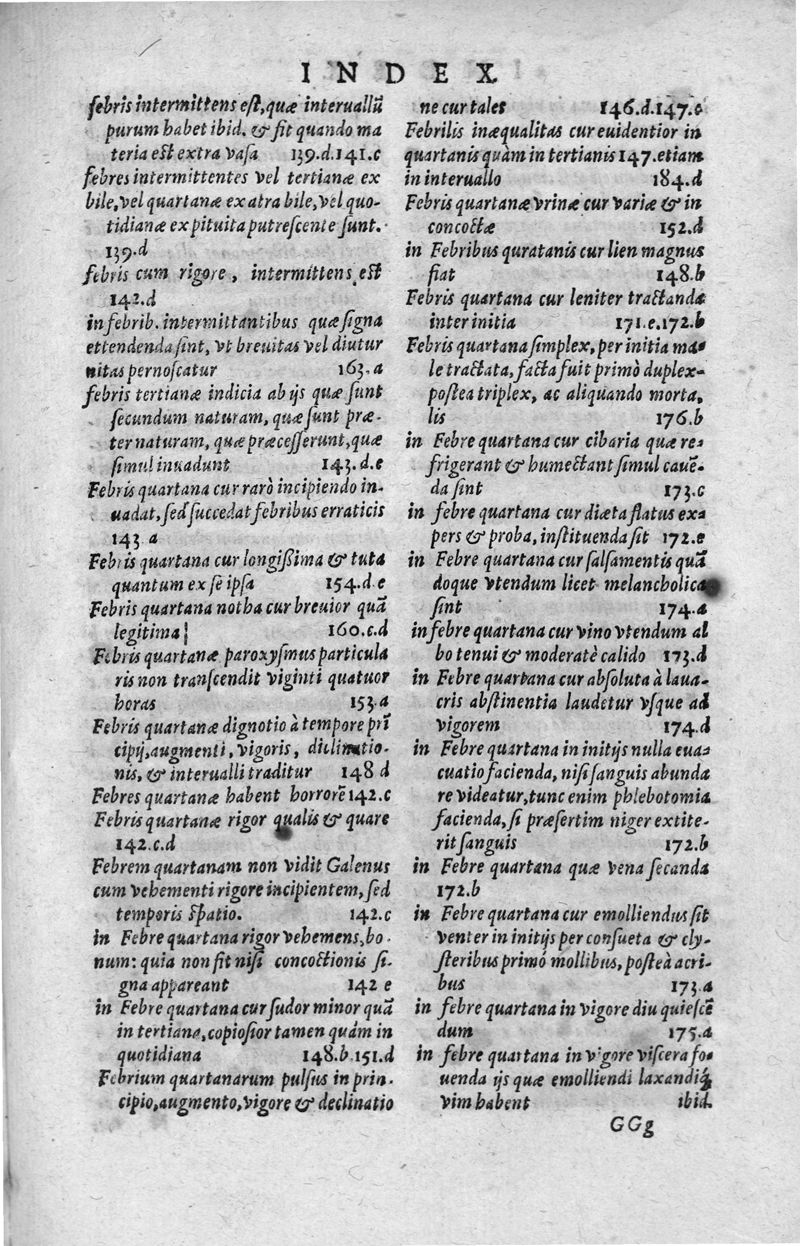 INDEX
febris intermittens est, quæ interuallũ
purum habet ibid. & fit quando ma
teria est extra vasa 139.d.141.c
febres intermittentes vel tertianæ ex
bile, vel quartanæ ex atra bile, vel quo-
tidianæ ex pituita putrescente sunt.
139.d
febris cum rigore, intermittens est
142.d
in febrib. intermittantibus quæ signa
ettendenda sint, vt breuitas vel diutur
nitas pernoscatur 163.a
febris tertianæ indicia ab ijs quæ sunt
secundum naturam, quæ sunt præ-
ter naturam, quæ præcesserunt, quæ
simul inuadunt 143.d.e
Febris quartana cur rarò incipiendo in-
uadat, sed succedat febribus erraticis
143 a
Febris quartana cur longißima & tuta
quantum ex se ipsa 154.d e
Febris quartana notha cur breuior quã
legitima 160.c.d
Febris quartanæ paroxysmus particula
ris non transcendit viginti quatuor
horas 153.a
Febris quartanæ dignotio à tempore prĩ
cipij, augmenti, vigoris, diclinatio-
nis, & interualli traditur 148 d
Febres quartanæ habent horrorẽ 142.c
Febris quartanæ rigor qualis & quare
142.c.d
Febrem quartanam non vidit Galenus
cum vehementi rigore incipientem, sed
temporis spatio. 142.c
in Febre quartana rigor vehemens, bo-
num: quia non fit nisi concoctionis si-
gna appareant 142 e
in Febre quartana cur sudor minor quã
in tertiana, copiosior tamen quàm in
quotidiana 148.b.151.d
Febrium quartanarum pulsus in prin-
cipio, augmento, vigore & declinatio
ne cur tales 146.d.147.c
Febrilis inæqualitas cur euidentior in
quartanis quàm in tertianis 147. etiam
in interuallo 184.d
Febris quartanæ vrinæ cur variæ & in
concoctæ 152.d
in Febribus quratanis cur lien magnus
fiat 148.b
Febris quartana cur leniter tractanda
inter initia 171.e.172.b
Febris quartana simplex, per initia ma-
le tractata, facta fuit primò duplex-
postea triplex, ac aliquando morta,
lis 176.b
in Febre quartana cur cibaria quæ re-
frigerant & humectant simul cauẽ-
da sint 173.c
in febre quartana cur diæta flatus ex-
pers & proba, instituenda sit 172.e
in Febre quartana cur salsamentis quã
doque vtendum licet melancholica
sint 174.a
in febre quartana cur vino vtendum al
bo tenui & moderatè calido 173.d
in Febre quartana cur absoluta à laua-
cris abstinentia laudetur vsque ad
vigorem 174.d
in Febre quartana in initijs nulla eua-
cuatio facienda, nisi sanguis abunda
re videatur, tunc enim phlebotomia
facienda, si præsertim niger extite-
rit sanguis 172.b
in Febre quartana quæ vena secanda
172.b
in Febre quartana cur emolliendus sit
venter in initijs per consueta & cly-
steribus primó mollibus, posteà acri-
bus 173.a
in febre quartana in vigore diu quiescẽ
dum 175.a
in febre quartana in vigore viscera fo-
uenda ijs quæ emolliendi laxandiq́;
vim habent ibid.
GGg